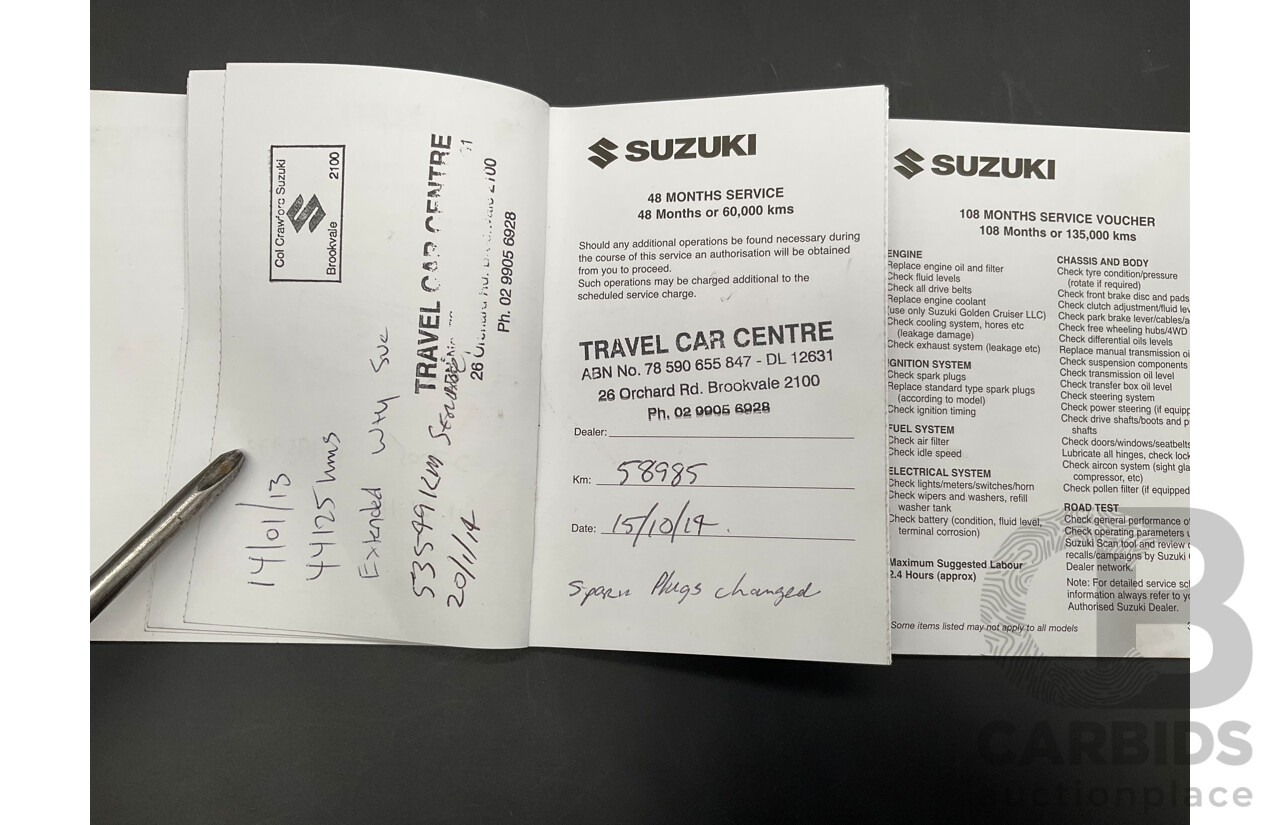 Col Crawford Suzuki
Brookvale 2100
14/01/13
44125 kms
Extended Wty Svc
TRAVEL CAR CENTRE
26 Orchard Rd. Brookvale 2100
Ph. 02 9905 6928
53549 KM
20/1/14
SUZUKI
48 MONTHS SERVICE
48 Months or 60,000 kms
Should any additional operations be found necessary during
the course of this service an authorisation will be obtained
from you to proceed.
Such operations may be charged additional to the
scheduled service charge.
TRAVEL CAR CENTRE
ABN No. 78 590 655 847 - DL 12631
26 Orchard Rd. Brookvale 2100
Ph, 02 9905 6928
Dealer:
Km: 58985
Date: 15/10/14.
Spark Plugs changed
SUZUKI
108 MONTHS SERVICE VOUCHER
108 Months or 135,000 kms
ENGINE
Replace engine oil and filter
Check fluid levels
Check all drive belts
Replace engine coolant
(use only Suzuki Golden Cruiser LLC)
Check cooling system, hores etc
(leakage damage)
Check exhaust system (leakage etc)
IGNITION SYSTEM
Check spark plugs
Replace standard type spark plugs
(according to model)
Check ignition timing
FUEL SYSTEM
Check air filter
Check idle speed
ELECTRICAL SYSTEM
Check lights/meters/switches/horn
Check wipers and washers, refill
washer tank
Check battery (condition, fluid level,
terminal corrosion)
Maximum Suggested Labour
2.4 Hours (approx)
Some items listed may not apply to all models
CHASSIS AND BODY
Check tyre condition/pressure
(rotate if required)
Check front brake disc and pads
Check clutch adjustment/fluid lev
Check park brake lever/cables/a
Check free wheeling hubs/4WD
Check differential oils levels
Replace manual transmission oi
Check suspension components
Check transmission oil level
Check transfer box oil level
Check steering system
Check power steering (if equipp
Check drive shafts/boots and p
shafts
Check doors/windows/seatbelts
Lubricate all hinges, check lock
Check aircon system (sight gla
compressor, etc)
Check pollen filter (if equipped
ROAD TEST
Check general performance o
Check operating parameters u
Suzuki Scan tool and review o
recalls/campaigns by Suzuki
Dealer network.
Note: For detailed service scl
information always refer to yo
Authorised Suzuki Dealer.
CB
CARBIDS
auctionplace